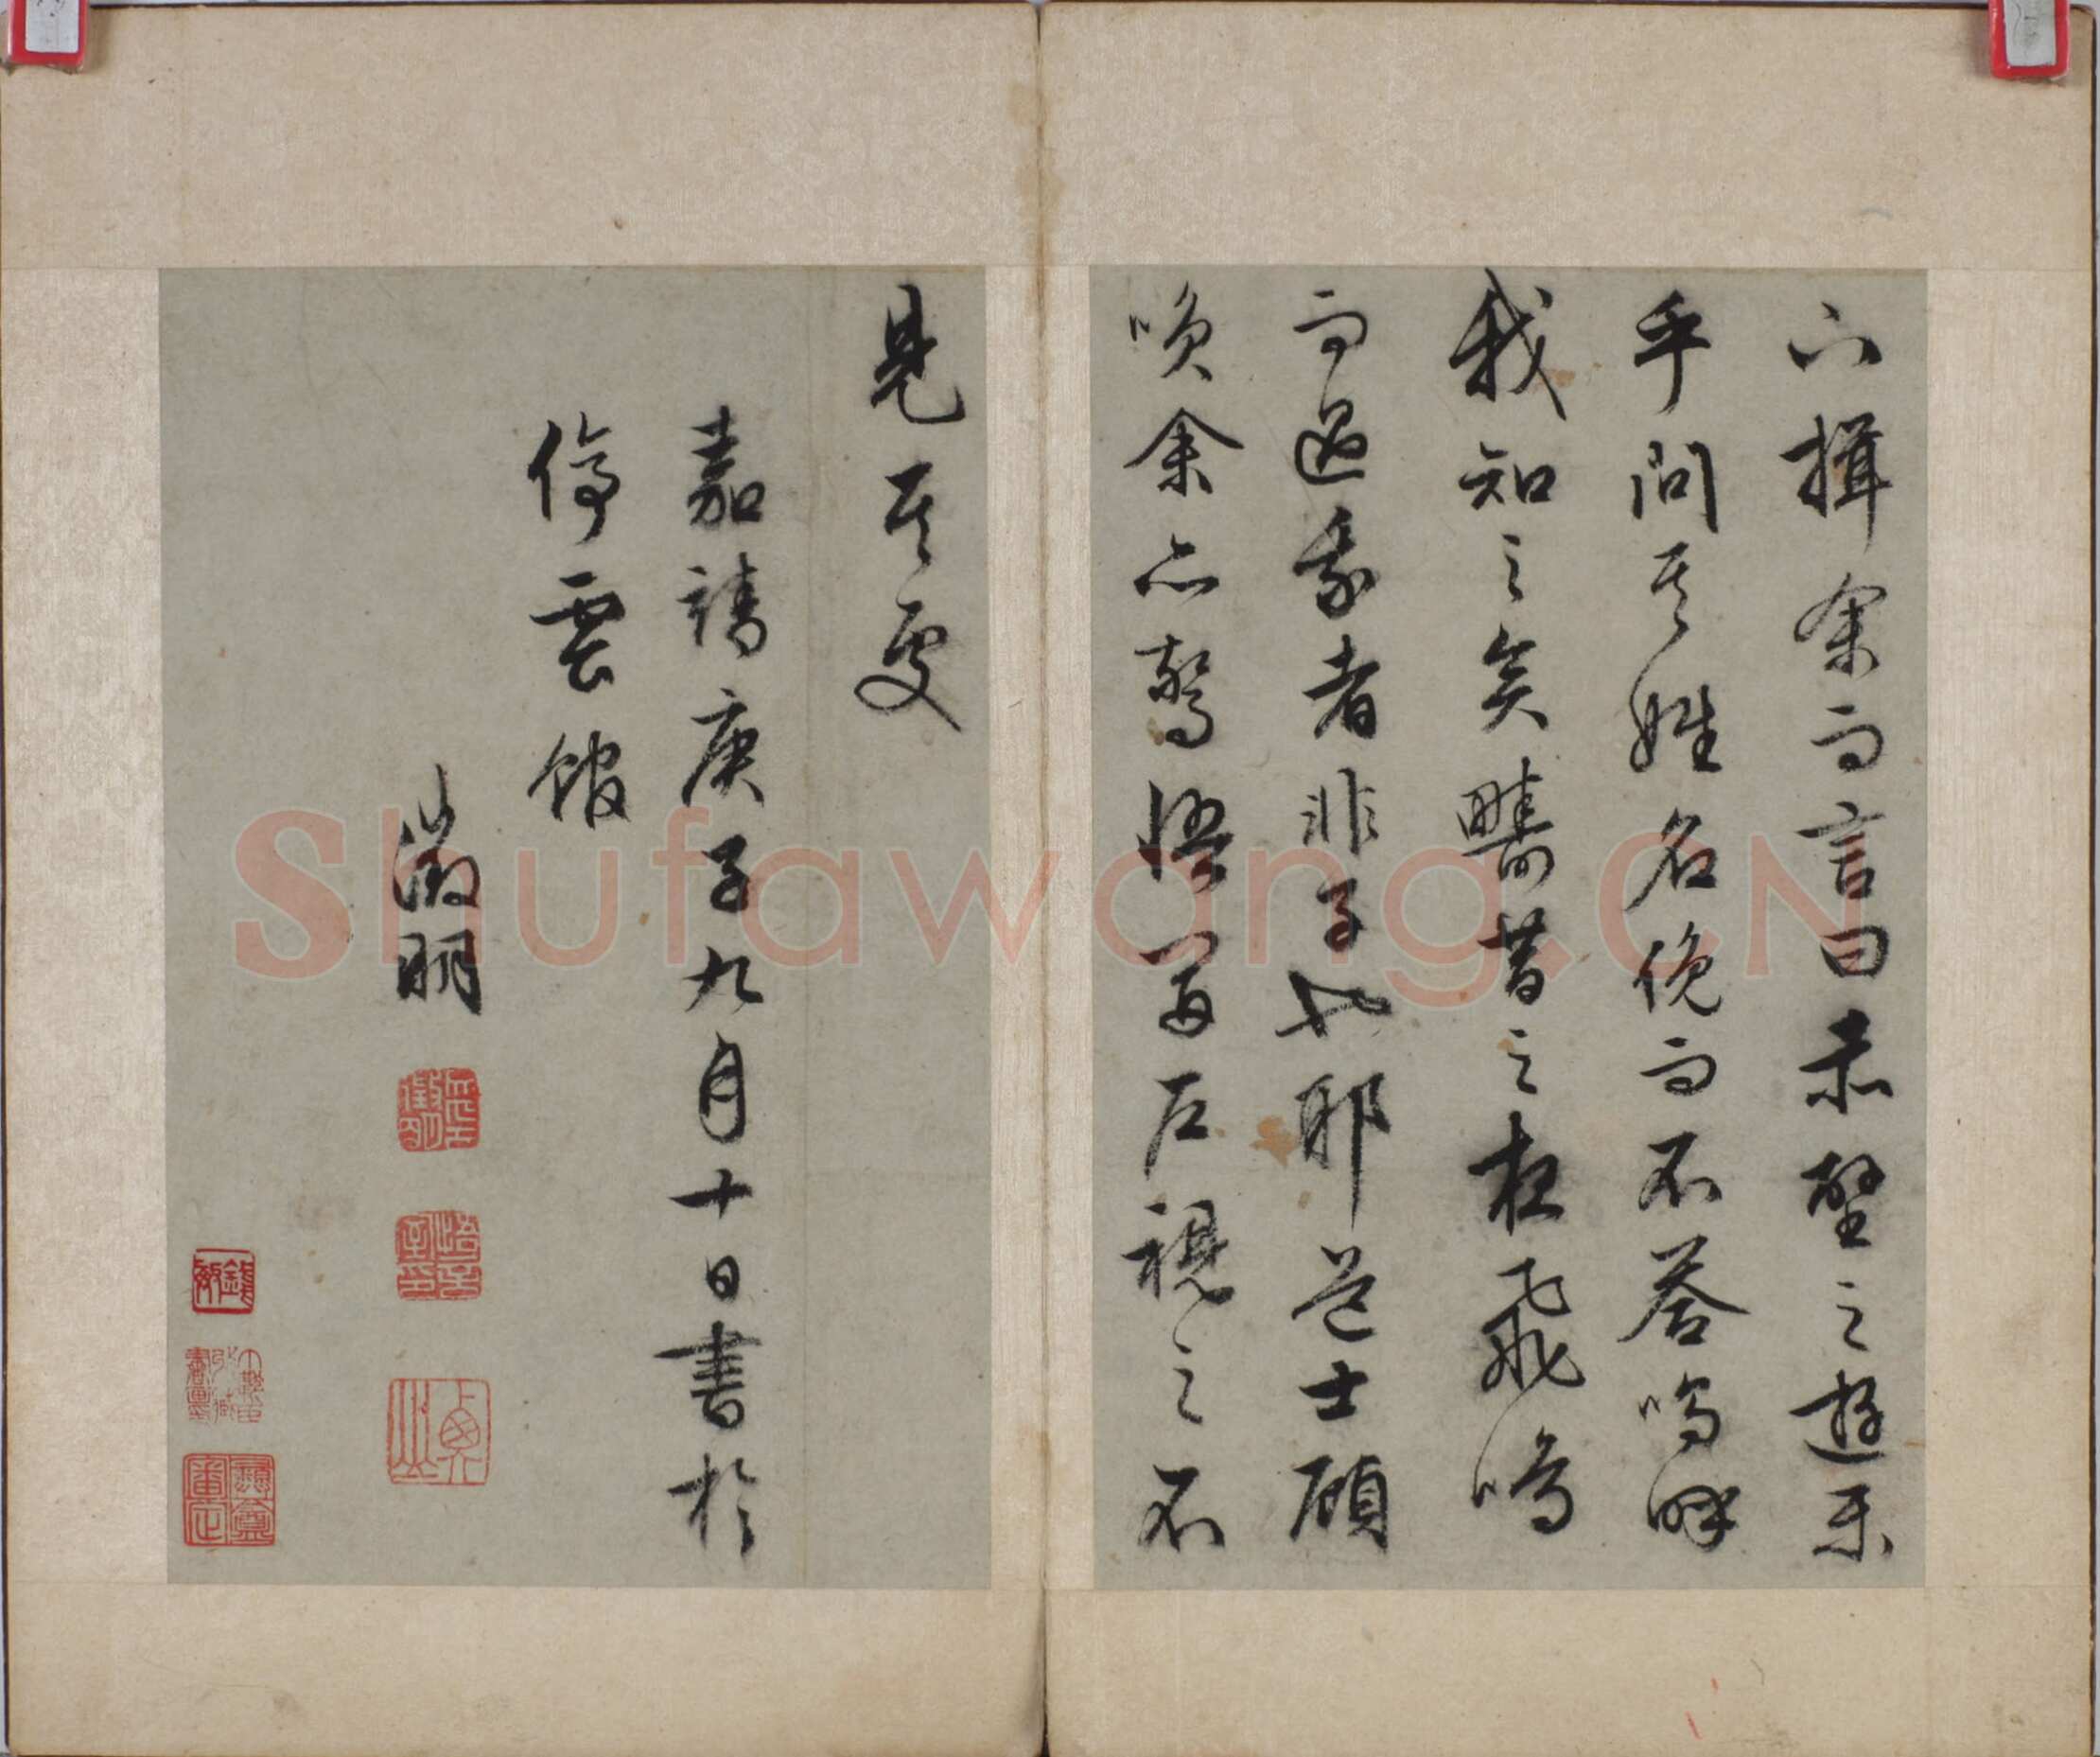 下揖余而言曰赤壁之遊樂
乎問其姓名俛而不答嗚呼
我知之矣疇昔之夜飛鳴
而過我者非子也耶道士顧
笑余亦驚悟開户視之不
見其處
嘉靖庚子九月十日書於
停雲館
徵明
Shufawang.CN